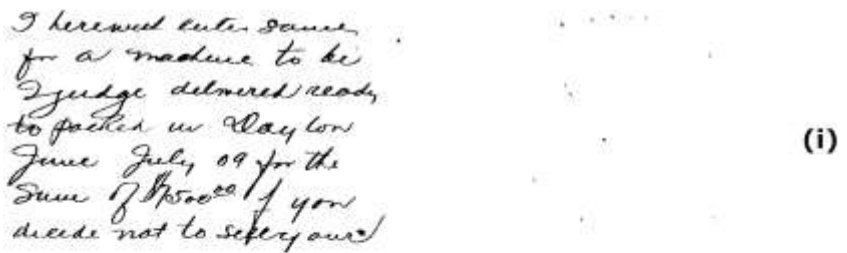 I herewith enter same
for a machine to be
I judge delivered ready
to packed in Dayton
June July 09 for the
Sum of $7500.00 if you
decide not to sell yours
(i)